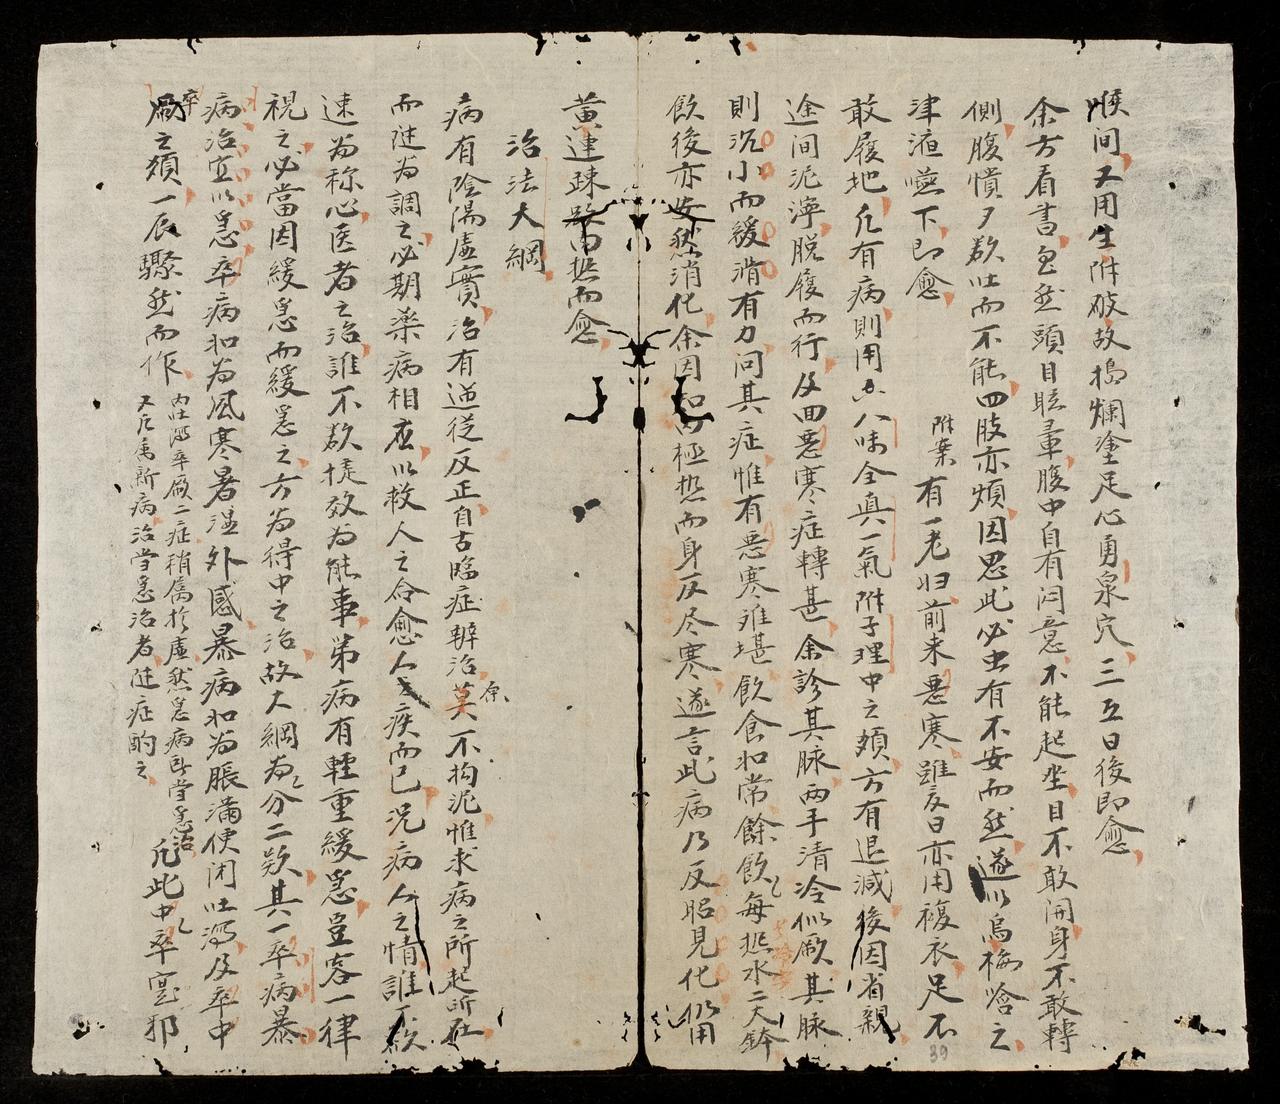 喉间又用生附破故搗爛塗足心勇泉穴三五日後即愈
余方看書忽然頭目眩暈腹中自有闷意不能起坐目不敢開身不敢轉
側腹憤夕欬吐而不能四肢亦煩因思此必虫有不安而然遂以烏梅啥之
津液嚥下即愈 附案 有一老妇前来惡寒雖夏日亦用複衣足不
敢履地凡有病則用 八味全真一氣附子理中之類方有退減後因省親
途间泥濘脱履而行及回惡寒症轉甚余診其脉两手清冷似厥其脉
則沉小而緩濇有力问其症惟有惡寒难堪飲食如常餘飲每热水二大鉢
飲後亦安然消化余因知内極热而身反尽寒遂言此病乃反眧見化仍用
黄連踈 内热而愈
治法大綱
病有陰陽虚實治有逆從反正自古臨症辦治原莫不拘泥惟求病之所起所在
而随为調之必期藥病相应以救人之令愈人之疾而已况病人之情誰不欲
速为称心医者之治誰不欲捷效为能事弟病有輕重緩急豈容一律
視之必當因緩急而緩急之方为得中之治故大綱为之分二欵其一卒病暴
病治宜以急卒病如为风寒暑湿外感暴病如为脹滿便闭吐瀉及卒中
卒厥之類一辰驟然而作 内吐瀉卒厥二症稍属於虚然急病即當急治
又凡属所病治當急治者随症酌之 凡此中卒寔邪